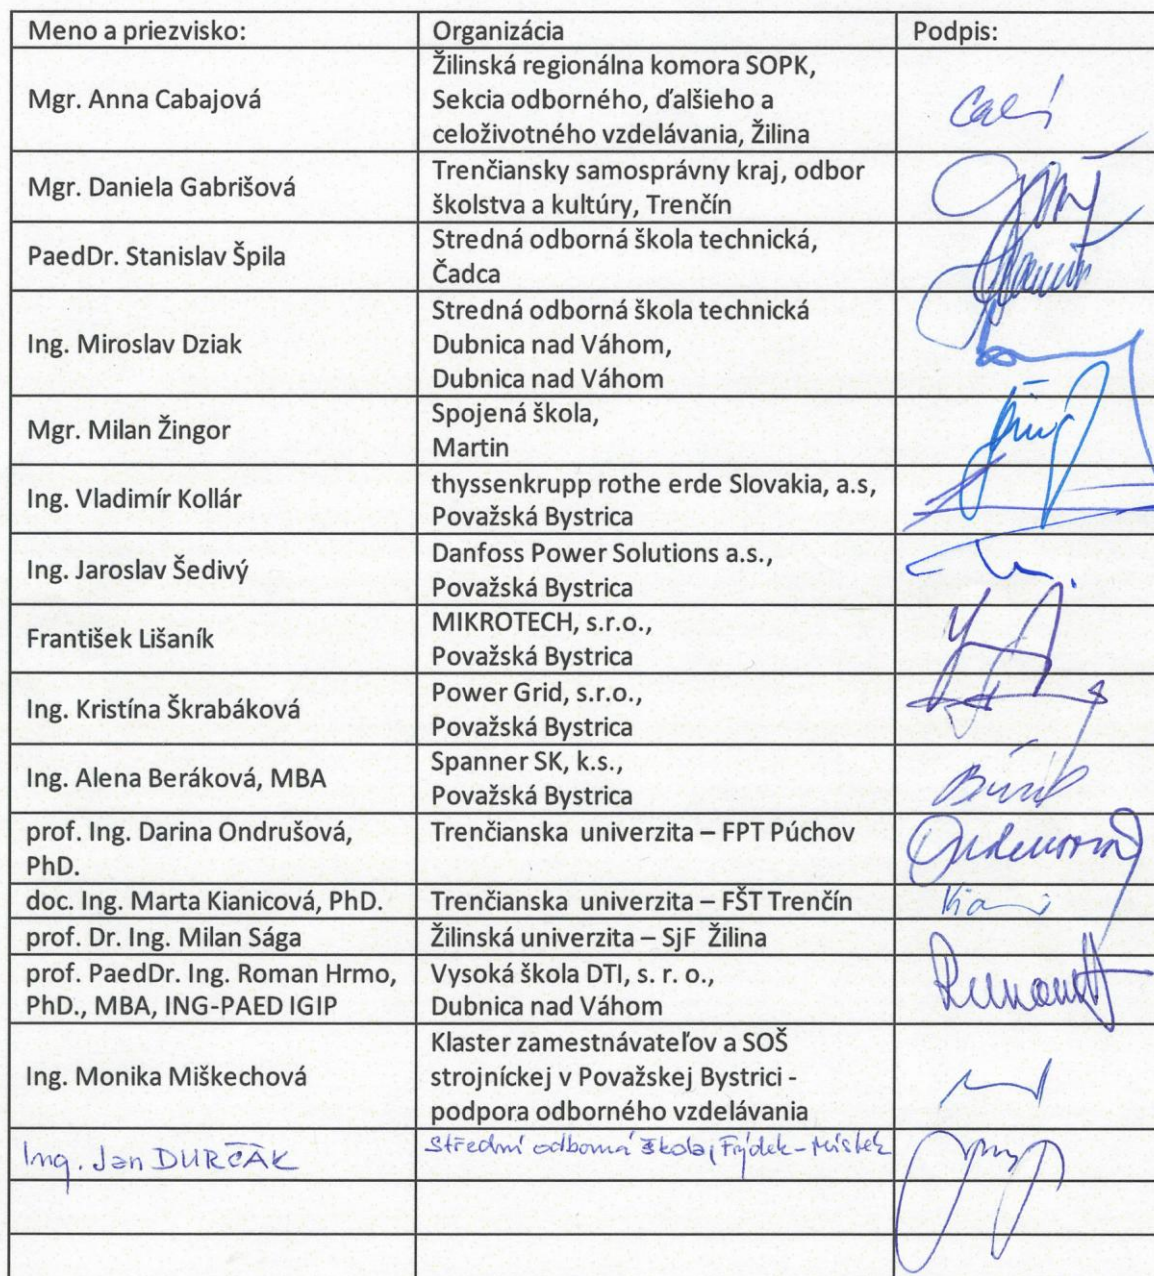 Meno a priezvisko: Organizácia Podpis:
Mgr. Anna Cabajová
Žilinská regionálna komora SOPK,
Sekcia odborného, ďalšieho a
celoživotného vzdelávania, Žilina
Mgr. Daniela Gabrišová
Trenčiansky samosprávny kraj, odbor
školstva a kultúry, Trenčín
PaedDr. Stanislav Špila
Stredná odborná škola technická,
Čadca
Ing. Miroslav Dziak
Stredná odborná škola technická
Dubnica nad Váhom,
Dubnica nad Váhom
Mgr. Milan Žingor
Spojená škola,
Martin
Ing. Vladimír Kollár
thyssenkrupp rothe erde Slovakia, a.s,
Považská Bystrica
Ing. Jaroslav Šedivý
Danfoss Power Solutions a.s.,
Považská Bystrica
František Lišaník
MIKROTECH, s.r.o.,
Považská Bystrica
Ing. Kristína Škrabáková
Power Grid, s.r.o.,
Považská Bystrica
Ing. Alena Beráková, MBA
Spanner SK, k.s.,
Považská Bystrica
prof. Ing. Darina Ondrušová,
PhD.
Trenčianska univerzita – FPT Púchov
doc. Ing. Marta Kianicová, PhD.
Trenčianska univerzita – FŠT Trenčín
prof. Dr. Ing. Milan Sága
Žilinská univerzita – SjF Žilina
prof. PaedDr. Ing. Roman Hrmo,
PhD., MBA, ING-PAED IGIP
Vysoká škola DTI, s. r. o.,
Dubnica nad Váhom
Ing. Monika Miškechová
Klaster zamestnávateľov a SOŠ
strojníckej v Považskej Bystrici -
podpora odborného vzdelávania
Ing. Jan DURČÁK
Střední odborná škola, Frýdek-Místek